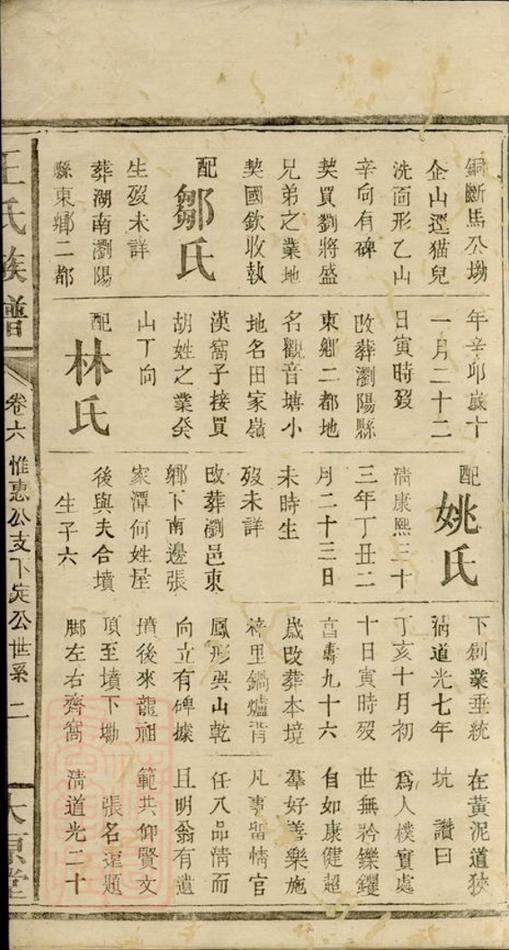 銅斷馬公坳
企山逕猫兒
洗面形乙山
辛向有碑
契買劉將盛
兄弟之業地
契國欽收執
配鄒氏
生歿未詳
葬湖南瀏陽
縣東鄉二都
年辛卯歲十
一月二十二
日寅時歿
改葬瀏陽縣
東鄉二都地
名觀音塘小
地名田家嶺
漢窩子接買
胡姓之業癸
山丁向
配林氏
配姚氏
清康熙三十
三年丁丑二
月二十三日
未時生
歿未詳
改葬瀏邑東
鄉下南邊張
家潭何姓屋
後與夫合墳
生子六
下創業垂統
清道光七年
丁亥十月初
十日寅時歿
享壽九十六
歲改葬本境
梓里鍋爐背
鳳形巽山乾
向立有碑據
墳後來龍祖
頂至墳下坳
脚左右齊窩
在黃泥道狹
坑 讚曰
爲人樸實處
世無矜鑠钁
自如康健超
羣好善樂施
凡事畱情官
任八品清而
且明翁有遺
範共仰賢文
張名逵題
清道光二十
王氏族譜
卷六 惟惠公支下定公世系 二
太原堂